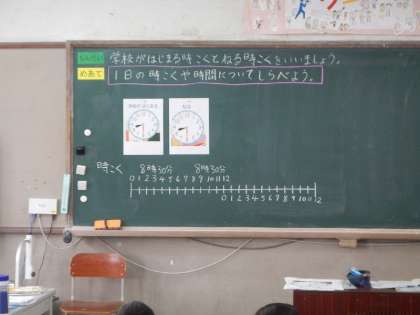 学校がはじまる時こくとねる時こくをいいましょう。
めあて 1日の時こくや時間についてしらべよう。
時こく 8時30分 8時30分
0 1 2 3 4 5 6 7 8 9 10 11 12
0 1 2 3 4 5 6 7 8 9 10 11 12